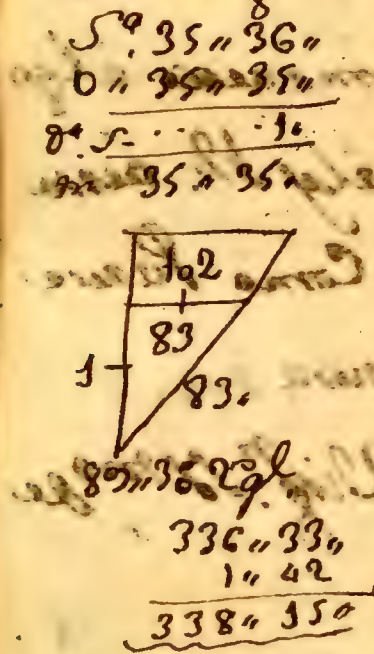 8
35 " 36 "
0 " 35 " 35 "
1.
35 " 35 "
1.2
83
1
83.
336 " 33 "
1 " 42
338 " 15 "